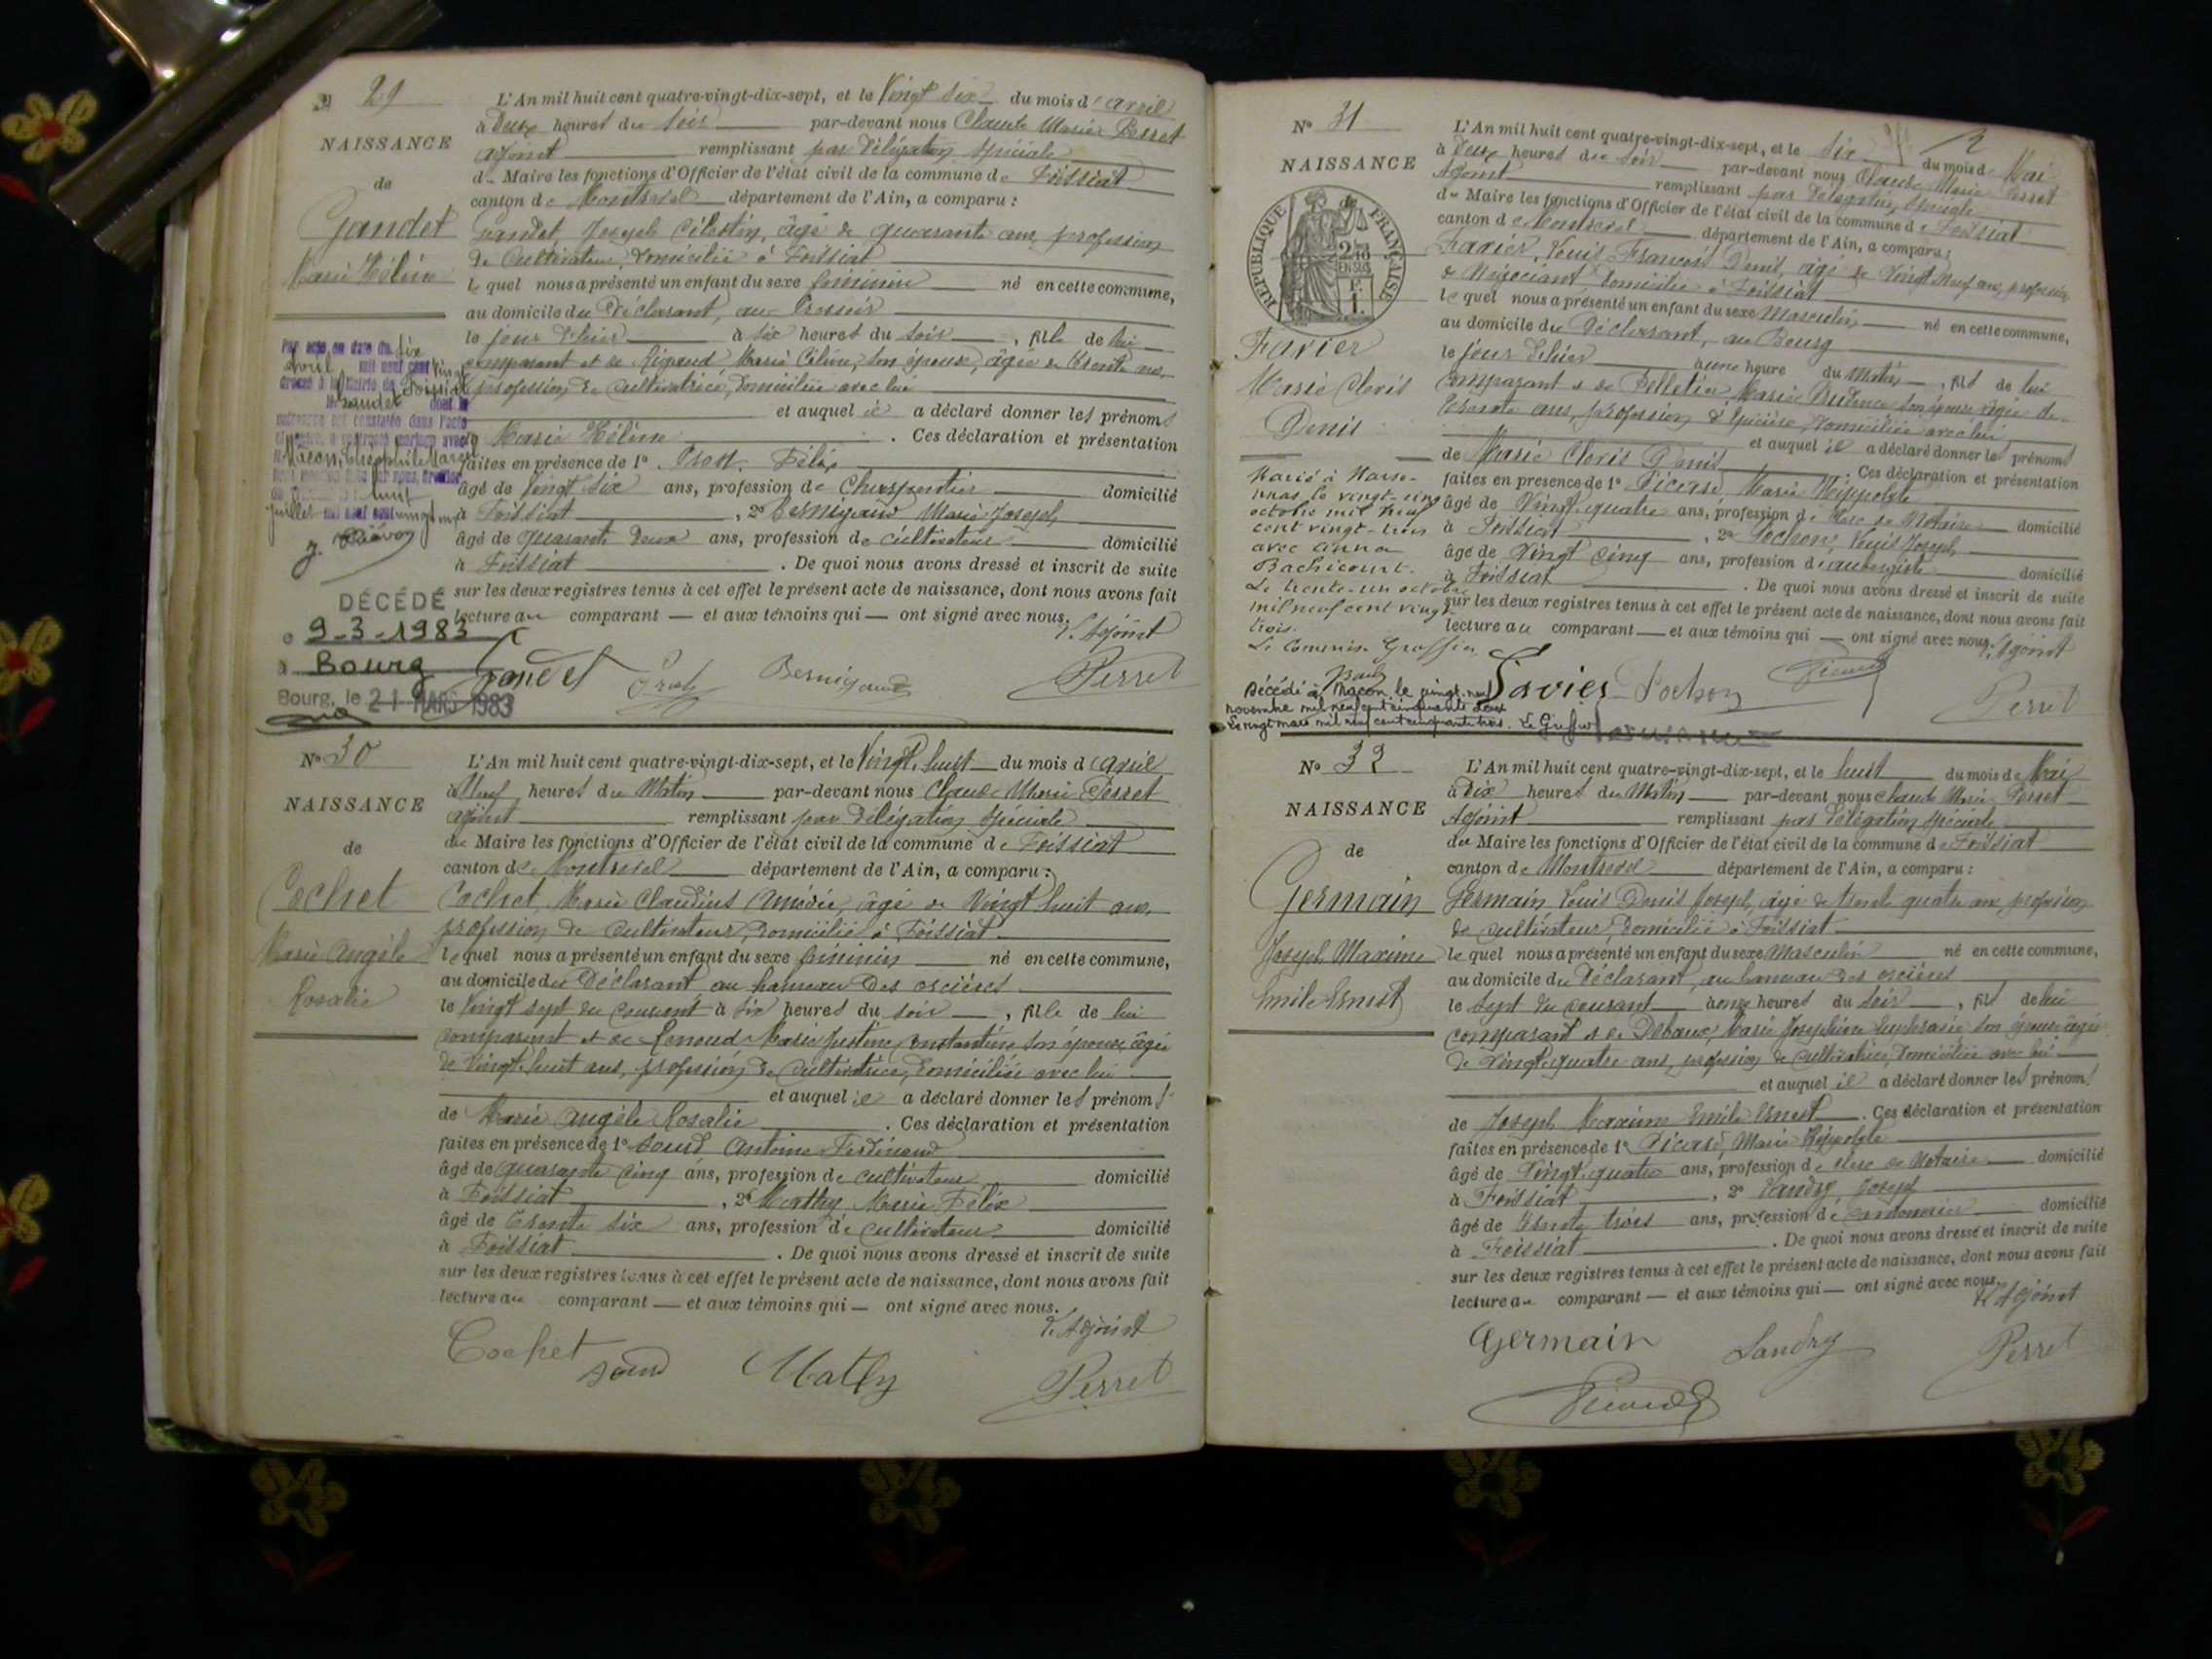 29
NAISSANCE
de
Gandet
Marie Hélène
L'An mil huit cent quatre-vingt-dix-sept, et le Vingt Six du mois d'avril
à Deux heures du Soir par-devant nous Claude Marie Perret
adjoint remplissant par délégation spéciale
du Maire les fonctions d'Officier de l'état civil de la commune de Foissiat
canton de Montrevel département de l'Ain, a comparu :
Gandet, Joseph Célestin, âgé de quarante ans, profession
de Cultivateur, domicilié à Foissiat
lequel nous a présenté un enfant du sexe féminin né en cette commune,
au domicile du Déclarant, au
le jour d'hier à six heures du soir, fille de lui
comparant et de Rigaud Marie Céline, son épouse, âgée de trente ans,
profession de cultivatrice, domiciliée avec lui
et auquel il a déclaré donner les prénoms
Marie Hélène. Ces déclaration et présentation
faites en présence de 1° Prost, Félix
âgé de Vingt six ans, profession de Charpentier domicilié
à Foissiat, 2° Bernigaud Marie Joseph
âgé de quarante deux ans, profession de cultivateur domicilié
à Foissiat. De quoi nous avons dressé et inscrit de suite
sur les deux registres tenus à cet effet le présent acte de naissance, dont nous avons fait
lecture au comparant — et aux témoins qui — ont signé avec nous.
L'Adjoint
Gandet Prost Bernigaud Perret
Par acte en date du six
avril mil neuf cent vingt
dressé à la Mairie de Foissiat
Gandet dont la
naissance est constatée dans l'acte
Macon, Théophile Marcel
huit
juillet mil neuf cent vingt
DÉCÉDÉ
9-3-1983
à Bourg
Bourg, le 21 MARS 1983
N° 30
NAISSANCE
de
Cochet
Marie Angèle
Rosalie
L'An mil huit cent quatre-vingt-dix-sept, et le Vingt huit du mois d'avril
à Neuf heures du Matin par-devant nous Claude Marie Perret
adjoint remplissant par délégation spéciale
du Maire les fonctions d'Officier de l'état civil de la commune de Foissiat
canton de Montrevel département de l'Ain, a comparu :
Cochet, Marie Claudius Amédée, âgé de Vingt huit ans,
profession de cultivateur, domicilié à Foissiat
lequel nous a présenté un enfant du sexe féminin né en cette commune,
au domicile du Déclarant au hameau des orcières
le Vingt sept du courant à six heures du soir, fille de lui
comparant et de Renoud Marie Justine Constantine son épouse, âgée
de Vingt huit ans, profession de cultivatrice, domiciliée avec lui
et auquel il a déclaré donner les prénoms
de Marie Angèle Rosalie. Ces déclaration et présentation
faites en présence de 1° Soud Antoine Ferdinand
âgé de quarante cinq ans, profession de cultivateur domicilié
à Foissiat, 2° Mathy Marie Félix
âgé de trente six ans, profession de cultivateur domicilié
à Foissiat. De quoi nous avons dressé et inscrit de suite
sur les deux registres tenus à cet effet le présent acte de naissance, dont nous avons fait
lecture au comparant — et aux témoins qui — ont signé avec nous.
L'Adjoint
Cochet Soud Mathy Perret
N° 31
NAISSANCE
REPUBLIQUE FRANÇAISE
2/10
EN SUS
Favier
Marie Clovis
Denis
L'An mil huit cent quatre-vingt-dix-sept, et le Six du mois de Mai
à Deux heures du soir par-devant nous Claude Marie Perret
Adjoint remplissant par délégation spéciale
du Maire les fonctions d'Officier de l'état civil de la commune de Foissiat
canton de Montrevel département de l'Ain, a comparu :
Favier, Louis François Denis, âgé de Vingt Neuf ans, profession
de Négociant, domicilié à Foissiat
lequel nous a présenté un enfant du sexe Masculin né en cette commune,
au domicile du Déclarant, au Bourg
le jour d'hier à une heure du Matin, fils de lui
comparant et de Pelletier Marie Prudence son épouse âgée de
trente ans, profession d'épicière, domiciliée avec lui
et auquel il a déclaré donner les prénoms
de Marie Clovis Denis. Ces déclaration et présentation
faites en présence de 1° Picard, Marie Hippolyte
âgé de Vingt quatre ans, profession de clerc de Notaire domicilié
à Foissiat, 2° Pochon, Louis Joseph
âgé de Vingt cinq ans, profession d'aubergiste domicilié
à Foissiat. De quoi nous avons dressé et inscrit de suite
sur les deux registres tenus à cet effet le présent acte de naissance, dont nous avons fait
lecture au comparant — et aux témoins qui — ont signé avec nous.
L'Adjoint
Favier Pochon Picard Perret
Marié à
le vingt-cinq
octobre mil neuf
cent vingt-trois
avec Anna
Bachicourt.
Le trente-un octobre
mil neuf cent vingt
trois.
Le Commis Greffier
Décédé à Macon le vingt-neuf
novembre mil neuf cent cinquante deux
Le vingt mars mil neuf cent cinquante trois. Le Greffier
N° 32
NAISSANCE
de
Germain
Joseph Maxime
Emile Ernest
L'An mil huit cent quatre-vingt-dix-sept, et le huit du mois de Mai
à Dix heures du Matin par-devant nous Claude Marie Perret
Adjoint remplissant par délégation spéciale
du Maire les fonctions d'Officier de l'état civil de la commune de Foissiat
canton de Montrevel département de l'Ain, a comparu :
Germain Louis Denis Joseph, âgé de trente quatre ans profession
de cultivateur, domicilié à Foissiat
lequel nous a présenté un enfant du sexe Masculin né en cette commune,
au domicile du Déclarant, au hameau des orcières
le Sept du courant à onze heures du soir, fils de lui
comparant et de Debaux, Marie Joséphine Euphrasie son épouse âgée
de vingt quatre ans, profession de cultivatrice, domiciliée avec lui
et auquel il a déclaré donner les prénoms
de Joseph Maxime Emile Ernest. Ces déclaration et présentation
faites en présence de 1° Picard, Marie Hippolyte
âgé de Vingt quatre ans, profession de clerc de Notaire domicilié
à Foissiat, 2° Landry, Joseph
âgé de trente trois ans, profession de cordonnier domicilié
à Foissiat. De quoi nous avons dressé et inscrit de suite
sur les deux registres tenus à cet effet le présent acte de naissance, dont nous avons fait
lecture au comparant — et aux témoins qui — ont signé avec nous.
L'Adjoint
Germain Landry Perret
Picard